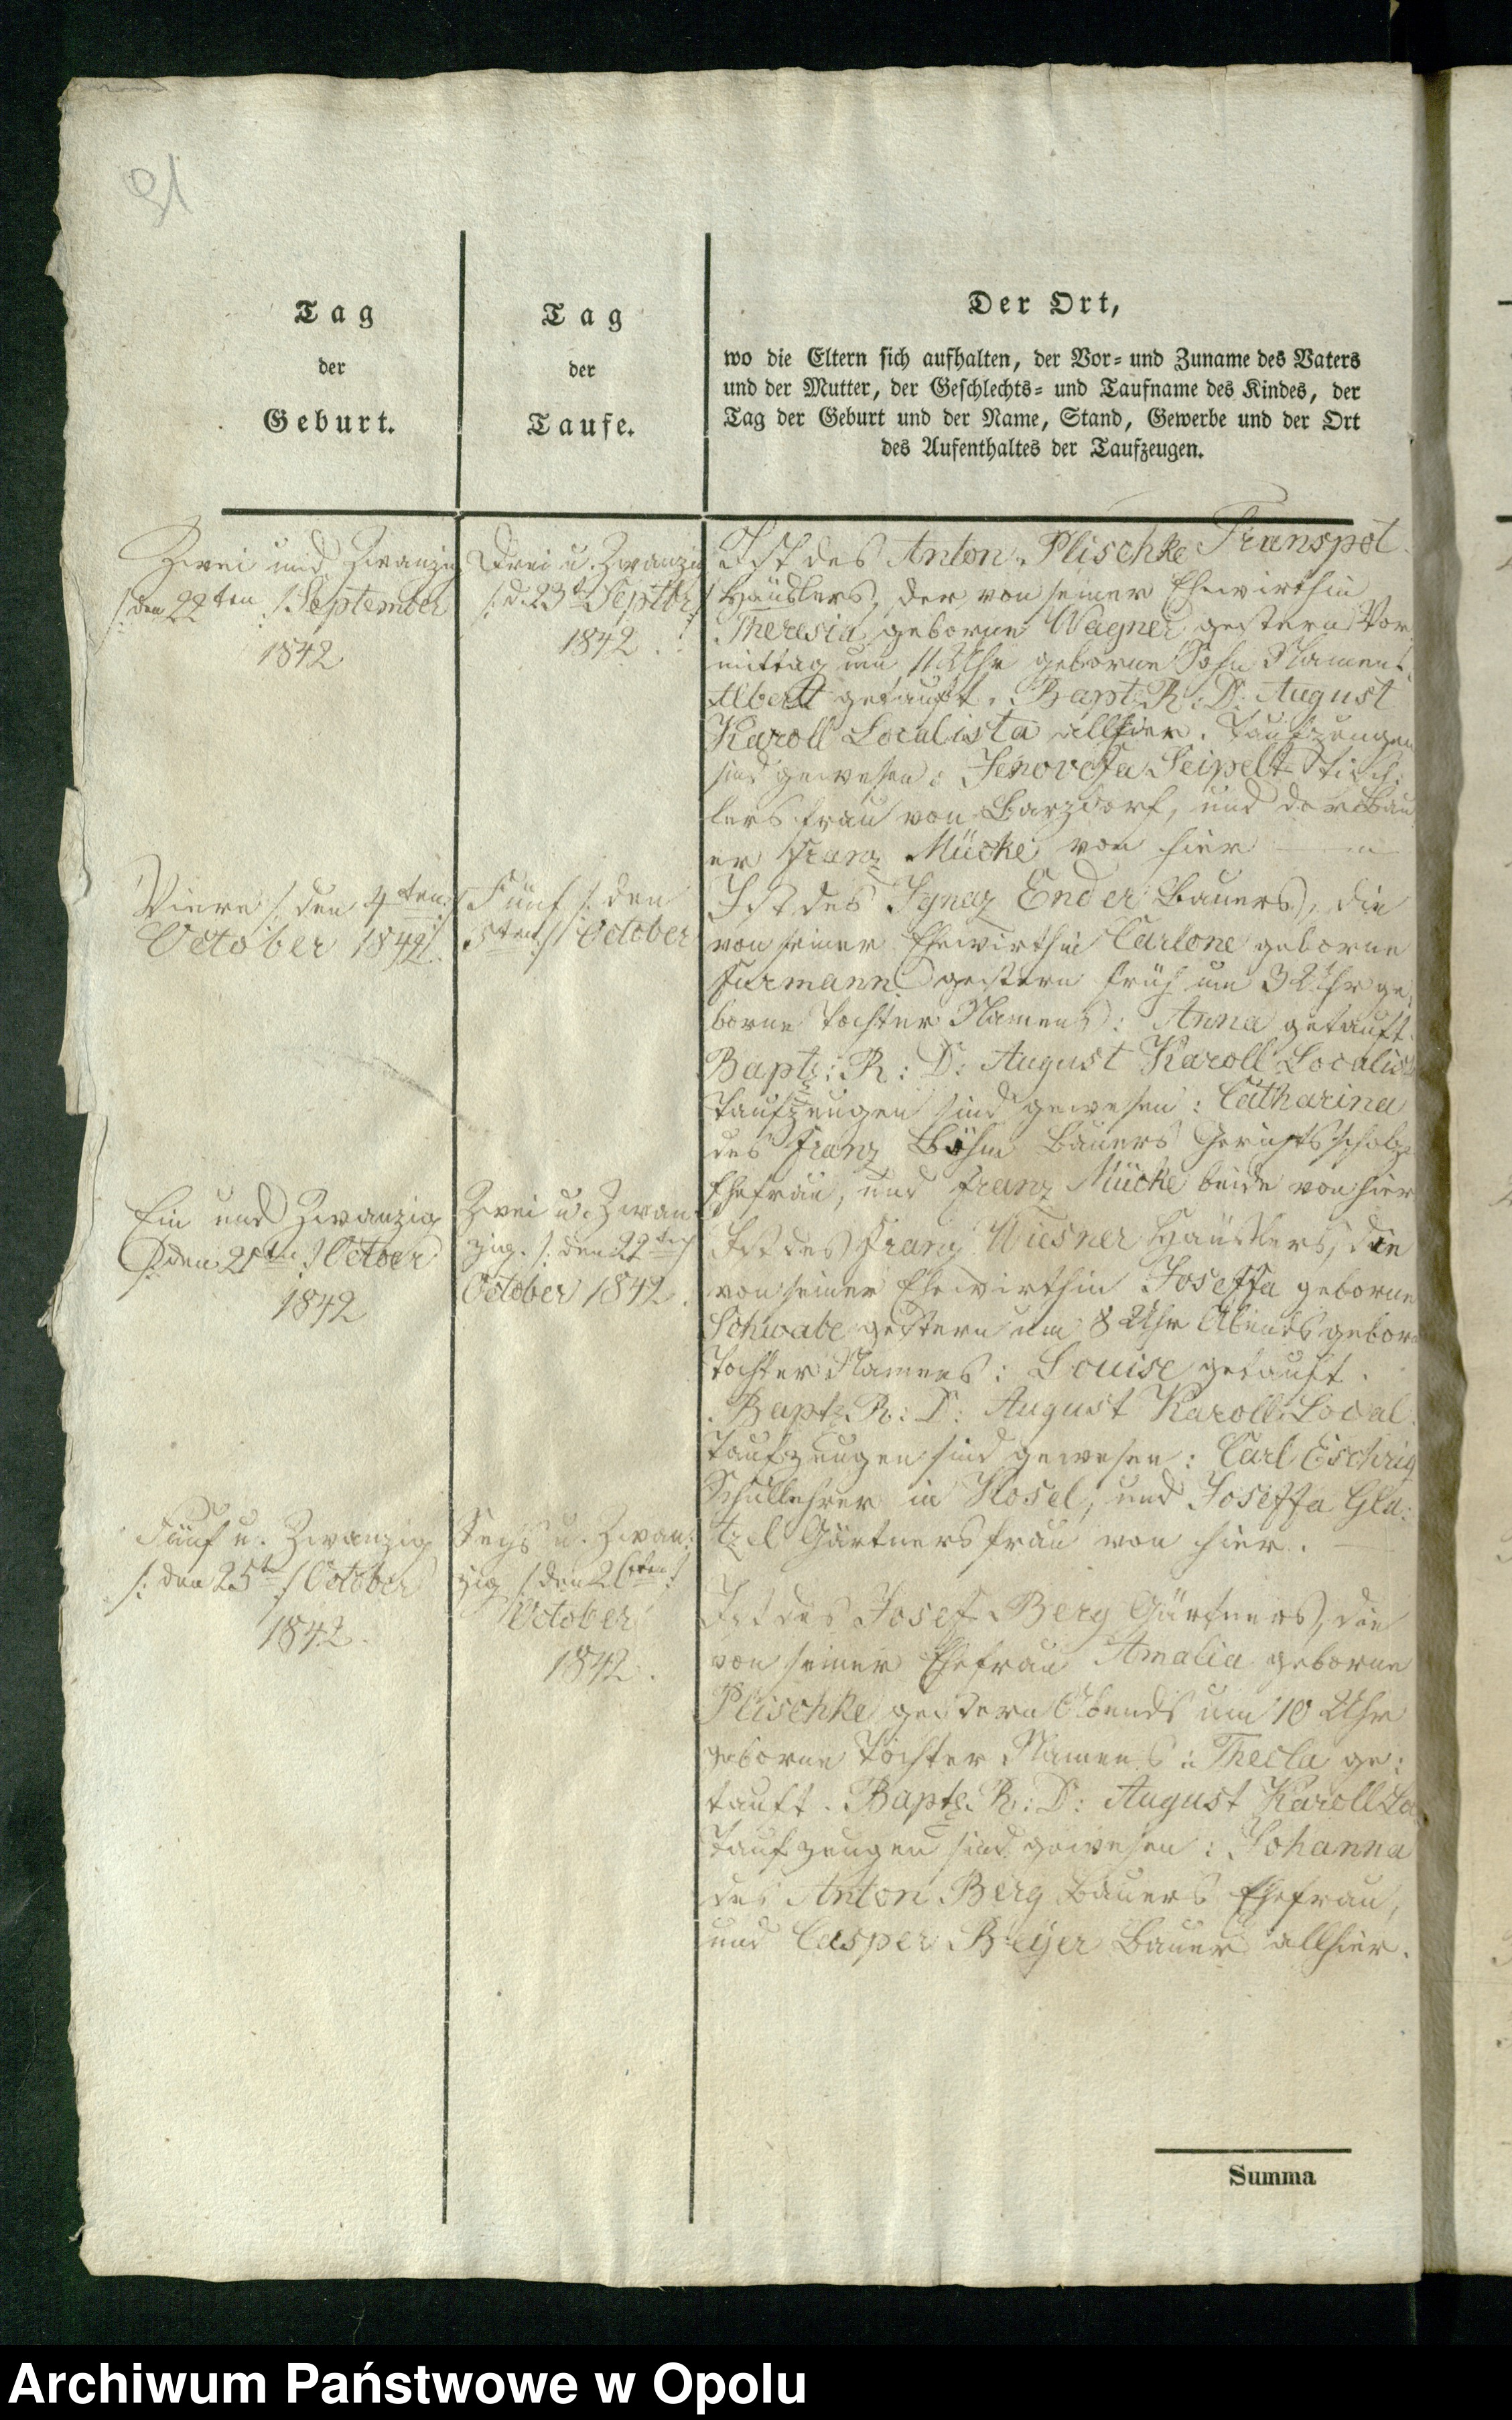 91
Tag
der
Geburt.
Tag
der
Taufe.
Der Ort,
wo die Eltern sich aufhalten, der Vor- und Zuname des Vaters
und der Mutter, der Geschlechts- und Taufname des Kindes, der
Tag der Geburt und der Name, Stand, Gewerbe und der Ort
des Aufenthaltes der Taufzeugen.
Zwei und Zwanzig
/: den 22ten :/ September
1842
Drei u. Zwanzig
/: d. 23t Septbr :/
1842
Transpot
Ist des Anton Plischke
Häuslers, der von seiner Ehewirthin
Theresia geborne Wagner gestern Vor
mittag um 11 Uhr geborne Sohn Namens
Albert getauft. Bapt: R: D: August
Karoll Localista allhier. Taufzeugen
sind gewesen: Jenovefa Seipelt Tisch:
lers frau von Barzdorf, und der Bau
er Franz Mücke von hier
Viere /: den 4ten :/
October 1842.
Fünf /: den
5ten :/ October
Ist des Ignaz Ender Bauers, die
von seiner Ehewirthin Carlone geborne
Furmann gestern früh um 3 Uhr ge:
borne Tochter Namens: Anna getauft.
Baptz: R: D: August Karoll Localist
Taufzeugen sind gewesen: Catharina
des Franz Böhm Bauers Gerichtsscholz
Ehefrau, und Franz Mücke beide von hier
Ein und Zwanzig
/: den 21ten :/ October
1842
Zwei u. Zwan
zig. /: den 22ten :/
October 1842.
Ist des Franz Wiesner Häuslers, die
von seiner Ehewirthin Joseffa geborne
Schwabe gestern um 8 Uhr Abends gebor
Tochter Namens: Louise getauft.
Baptz R: D: August Karoll Local.
Taufzeugen sind gewesen: Carl Eschrig
Schullehrer in Kosel, und Joseffa Gla:
tzel Gärtnersfrau von hier.
Fünf u. Zwanzig
/: den 25t :/ October
1842.
Sechs u. Zwan:
zig /: den 26ten :/
October
1842.
Ist des Josef Berg Gärtners, die
von seiner Ehefrau Amalia geborne
Plischke gestern Abends um 10 Uhr
geborne Tochter Namens: Thecla ge:
tauft. Baptz. R: D: August Karoll Lo
Taufzeugen sind gewesen: Johanna
des Anton Berg Bauers Ehefrau,
und Casper Beyer Bauer allhier.
Summa
Archiwum Państwowe w Opolu